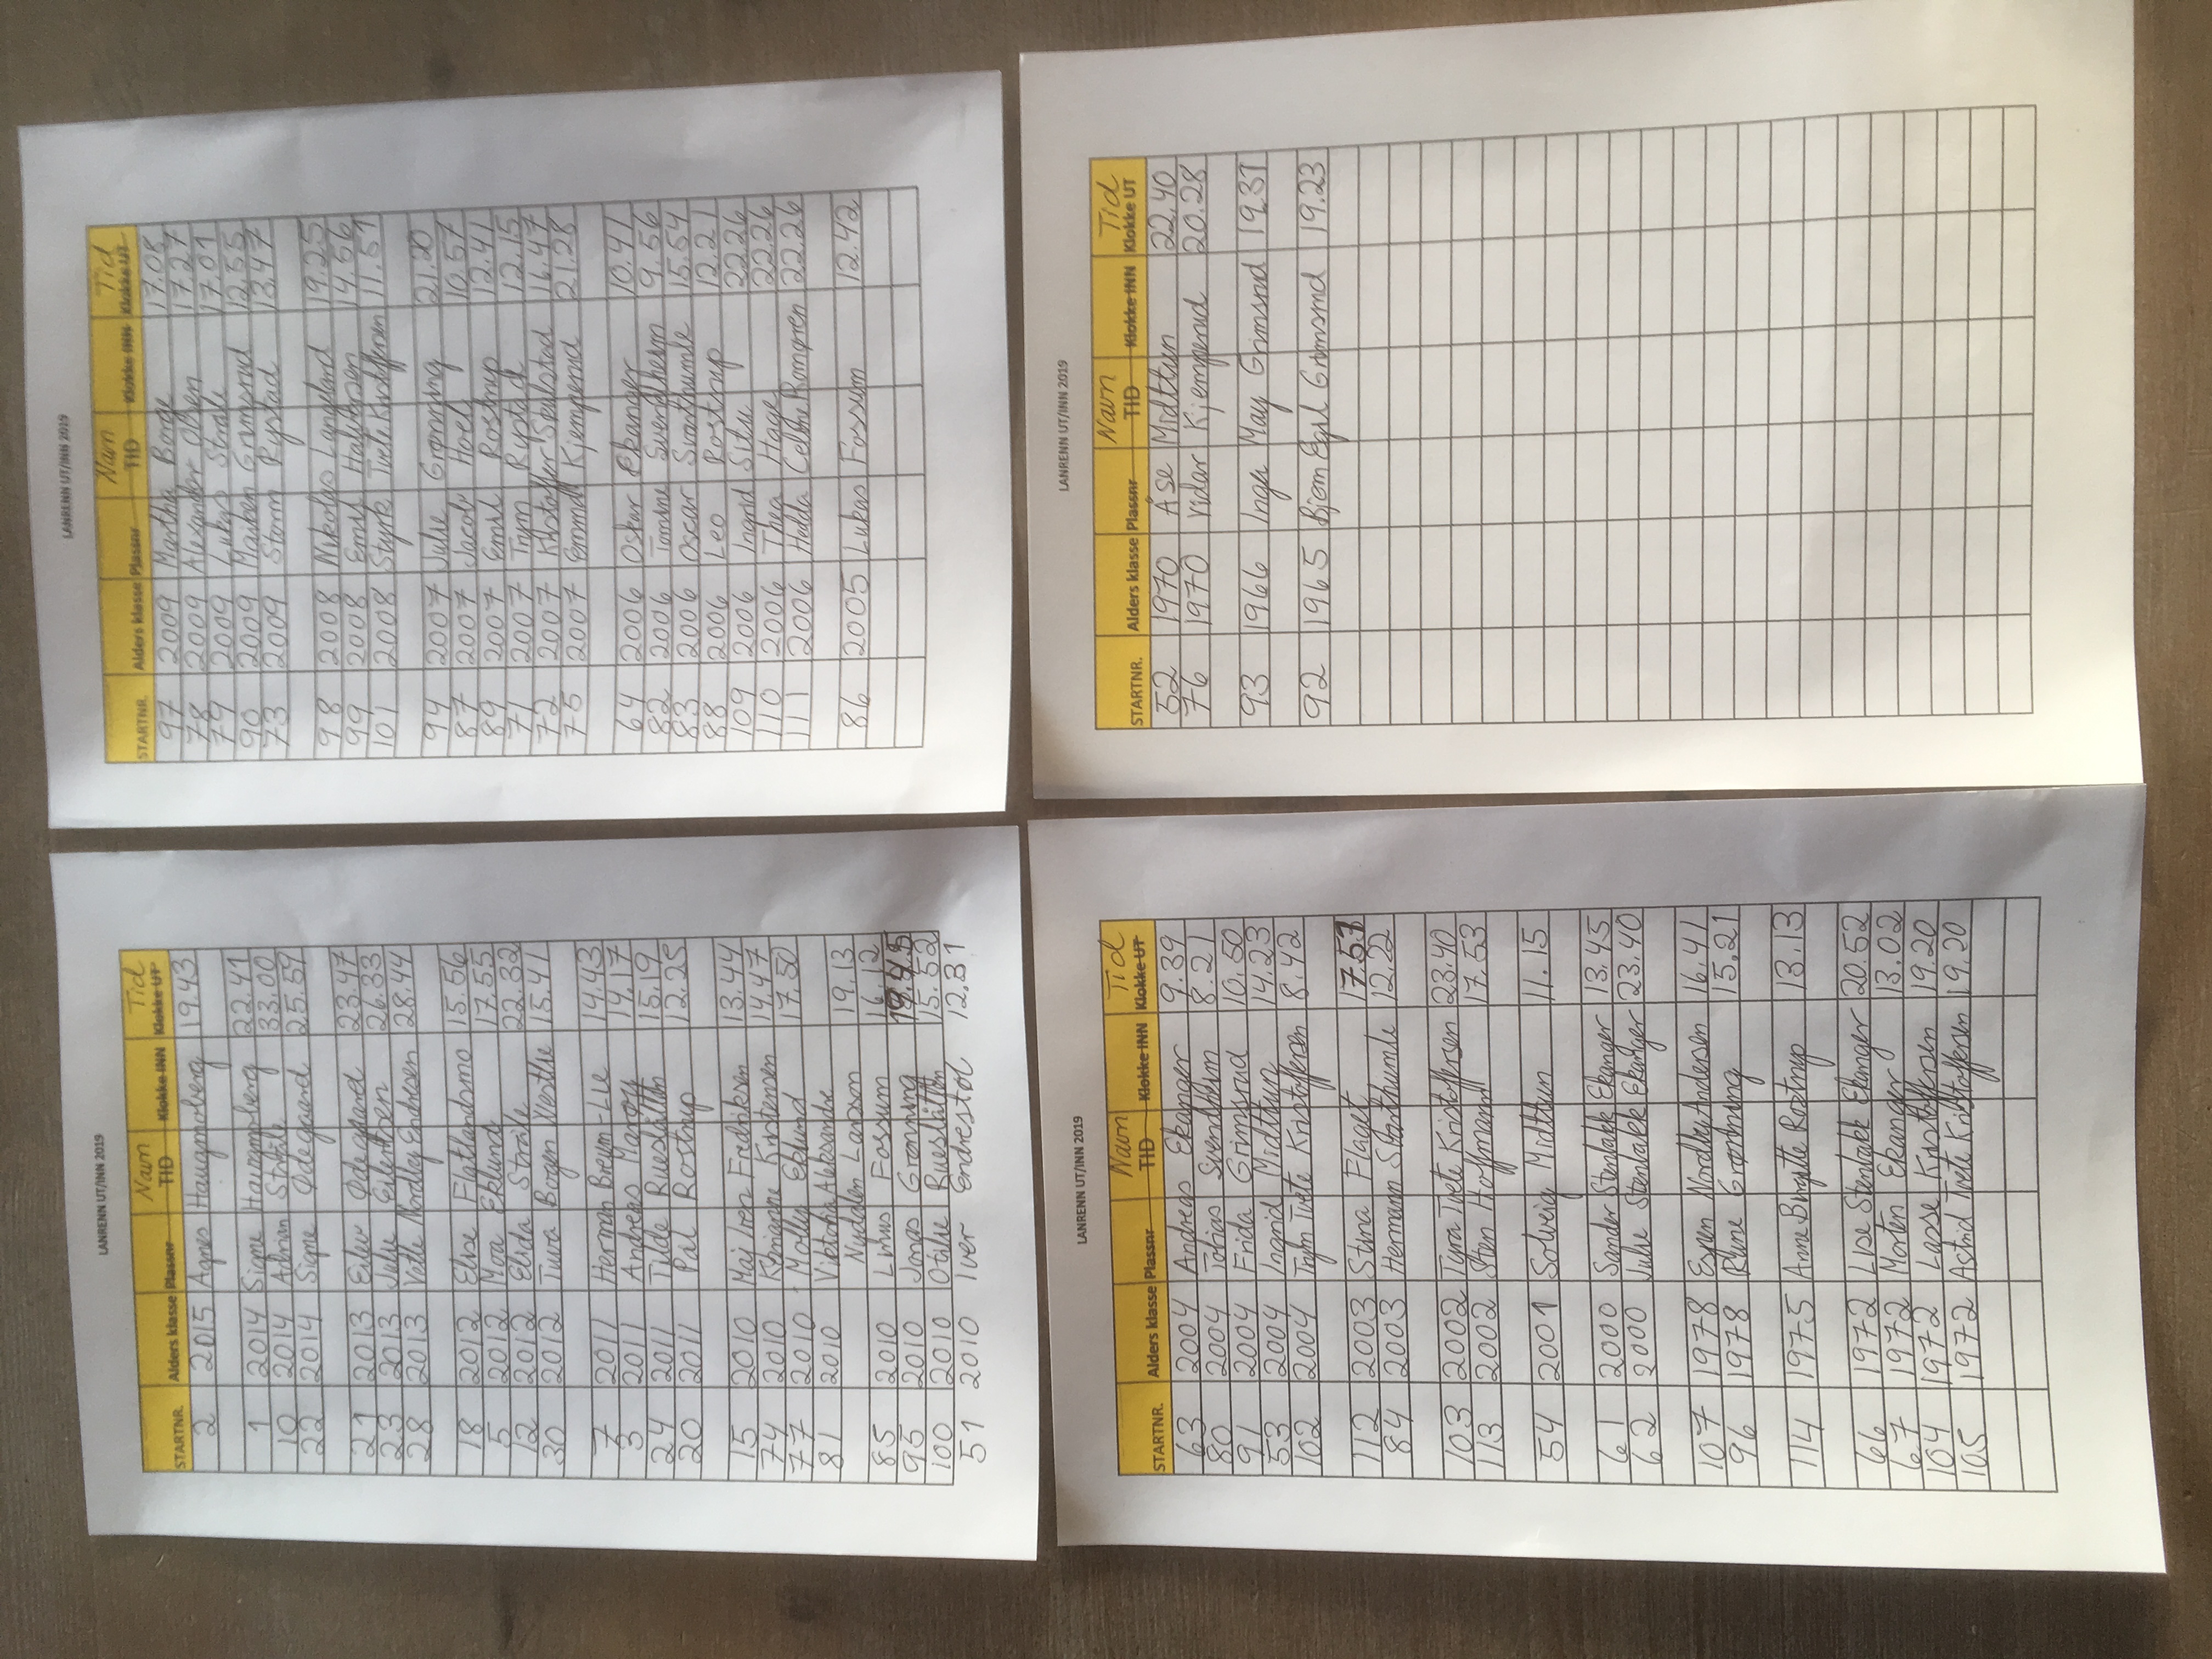 LANRENN UT/INN 2019
Navn Tid
STARTNR. Alders klasse Plassnr TID Klokke INN Klokke UT
2 2015 Agnes Haugmoberg 19.43
1 2014 Signe Haugmoberg 22.41
10 2014 Adrian Stråle 33.00
22 2014 Signe Ødegaard 25.59
21 2013 Eilev Ødegaard 23.47
23 2013 Julie Eilertsen 26.33
28 2013 Valle Nordlay Endresen 28.44
18 2012 Elise Flatlandsmo 15.56
5 2012 Moa Eklund 17.55
12 2012 Elida Stråle 22.32
30 2012 Tuva Borgen Vestlie 15.41
7 2011 Herman Breym-Lie 14.43
3 2011 Andreas 14.17
24 2011 Tilde Rueslåtten 15.19
20 2011 Pål Rostrup 12.25
15 2010 Maj Iren Fredriksen 13.44
74 2010 Kristensen 14.47
77 2010 Molly Eklund 17.50
81 2010 Viktoria Aleksandra
Nydalen Larsson 19.13
85 2010 Linus Fossum 16.12
95 2010 Jonas Grønning
100 2010 Otilie Rueslåtten 15.52
51 2010 Iver Endrestøl 12.31
LANRENN UT/INN 2019
Navn Tid
STARTNR. Alders klasse Plassnr TID Klokke INN Klokke UT
97 2009 Martha Borge 17.08
78 2009 Alexander Olsen 17.27
79 2009 Lukas Stråle 17.01
90 2009 Maiken Grimsrud 12.55
73 2009 Storm Rystad 13.47
98 2008 Nikolas Langeland 19.25
99 2008 Emil Halvorsen 14.56
101 2008 Styrk Tvete Kristoffersen 11.51
94 2007 Julie Grønning 21.20
87 2007 Jacob Hoel 10.57
89 2007 Emil Rostrup 12.41
71 2007 Trym Rystad 12.15
72 2007 Khristoffer Seulstad 16.47
75 2007 Emma Kjempenud 21.28
64 2006 Oskar Ekanger 10.41
82 2006 Tomine Svendheim 9.56
83 2006 Oscar Stanthumle 15.54
88 2006 Leo Rostrup 12.21
109 2006 Ingrid Situ 22.26
110 2006 Thea Hage 22.26
111 2006 Hedda Celine Romören 22.26
86 2005 Lukas Fossum 12.42
LANRENN UT/INN 2019
Navn Tid
STARTNR. Alders klasse Plassnr TID Klokke INN Klokke UT
63 2004 Andreas Ekanger 9.39
80 2004 Tobias Svendheim 8.21
91 2004 Frida Grimsrud 10.50
53 2004 Ingrid Midttun 14.23
102 2004 Trym Tvete Kristoffersen 8.42
112 2003 Stina Flaget
84 2003 Hermann Stanthumle 12.22
103 2002 Tyra Tvete Kristoffersen 23.40
113 2002 Stan Hoffmann 17.53
54 2001 Solveig Midttun 11.15
61 2000 Sander Stenbakk Ekanger 13.45
62 2000 Julie Stenbakk Ekanger 23.40
107 1978 Espen Nordby Andersen 16.41
96 1978 Rune Grønning 15.21
114 1975 Anne Birgitte Rostrup 13.13
66 1972 Lise Stenbakk Ekanger 20.52
67 1972 Morten Ekanger 13.02
104 1972 Lasse Kristoffersen 19.20
105 1972 Astrid Tvete Kristoffersen 19.20
LANRENN UT/INN 2019
Navn Tid
STARTNR. Alders klasse Plassnr TID Klokke INN Klokke UT
52 1970 Åse Midttun 22.40
76 1970 Vidar Kjempenud 20.28
93 1966 Inga May Grimsrud 19.31
92 1965 Bjørn Egil Grimsrud 19.23